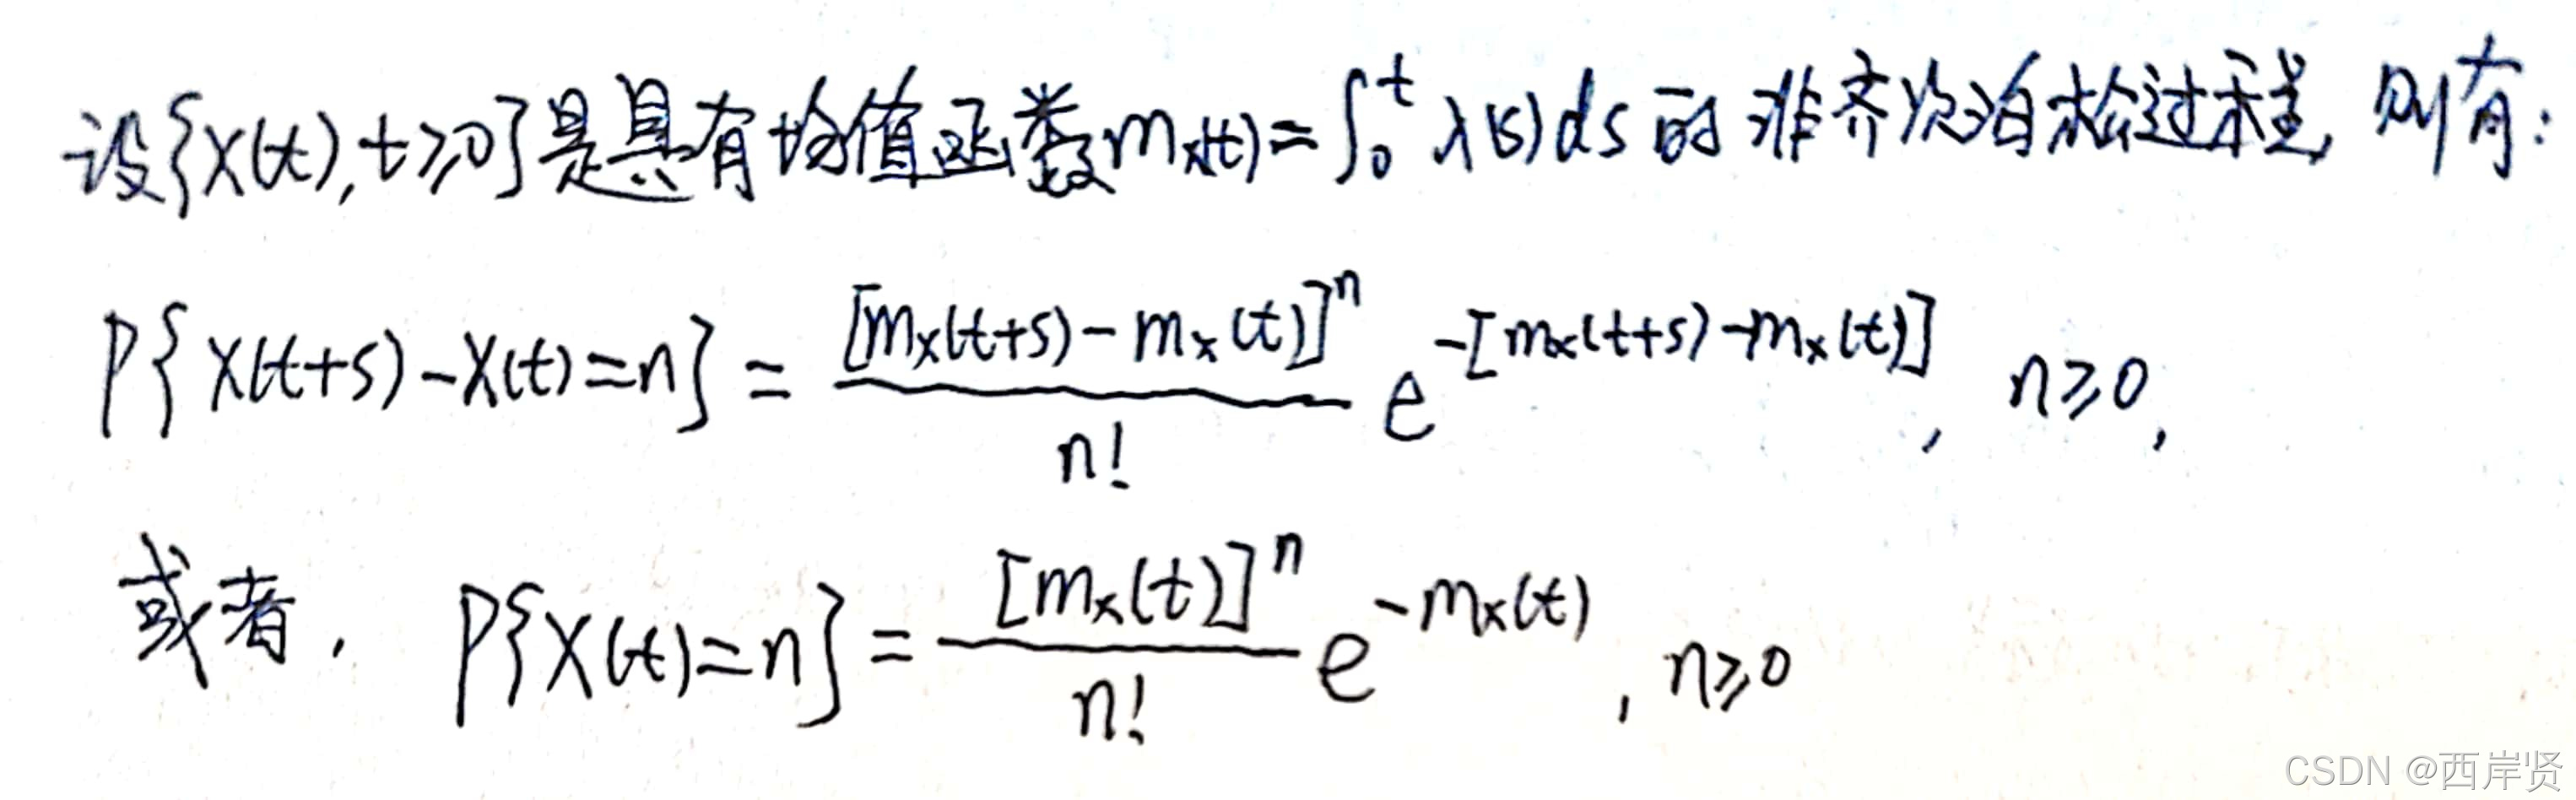 设{X(t),t≥0}是具有均值函数m_X(t)=∫_0^t λ(s)ds的非齐次泊松过程,则有:
P{X(t+s)-X(t)=n}=\frac{[m_X(t+s)-m_X(t)]^n}{n!}e^{-[m_X(t+s)-m_X(t)]}, n≥0,
或者, P{X(t)=n}=\frac{[m_X(t)]^n}{n!}e^{-m_X(t)}, n≥0
CSDN @西岸贤